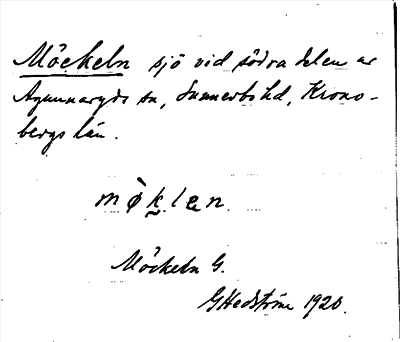 Möckeln sjö vid södra delen av
Agunnaryds sn, Sunnerbo hd, Krono-
bergs län.
mø̀k̬len
Möckeln G.
GHedström 1920.